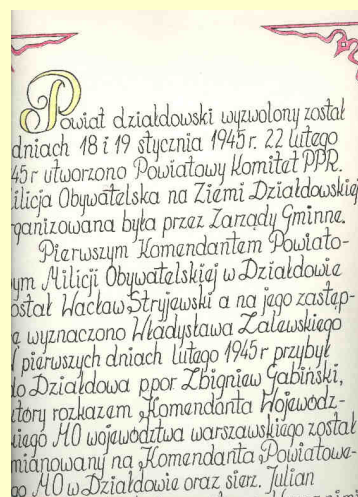 Powiat działdowski wyzwolony został
dniach 18 i 19 stycznia 1945 r. 22 lutego
45 r utworzono Powiatowy Komitet PPR.
ilicja Obywatelska na Ziemi Działdowskiej
rganizowana była przez Zarządy Gminne.
Pierwszym Komendantem Powiato-
ym Milicji Obywatelskiej w Działdowie
ostał Wacław Stryjewski a na jego zastęp-
ę wyznaczono Władysława Zalewskiego
pierwszych dniach lutego 1945 r przybył
do Działdowa ppor Zbigniew Gabiński,
tóry rozkazem „Komendanta Wojewódz-
iego MO województwa warszawskiego został
mianowany na „Komendanta „Powiatowe-
go MO w Działdowie oraz sierż. Julian